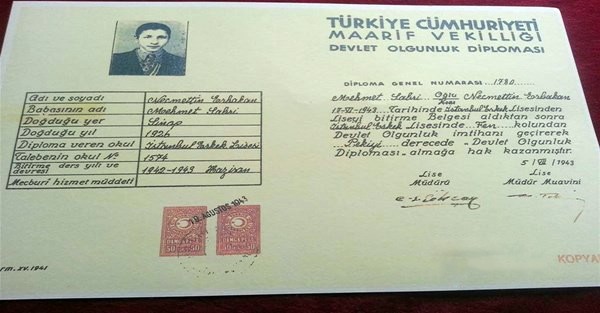 TÜRKİYE CÜMHURİYETİ
MAARİF VEKİLLİĞİ
DEVLET OLGUNLUK DİPLOMASI
DİPLOMA GENEL NUMARASI 1780
Adı ve soyadı Necmettin Erbakan
Babasının adı Mehmet Sabri
Doğduğu yer Sinop
Doğduğu yıl 1926
Diploma veren okul İstanbul Erkek Lisesi
Talebenin okul No 1574
Bitirme ders yılı ve devresi 1942-1943 Haziran
Mecburî hizmet müddeti
Mehmet Sabri Oğlu Necmettin Erbakan
Kızı
1943 Tarihinde İstanbul Erkek Lisesinden
Liseyi bitirme Belgesi aldıktan sonra
İstanbul Erkek Lisesinde Fen kolundan
Devlet Olgunluk imtihanı geçirerek
Pekiyi derecede Devlet Olgunluk
Diploması almağa hak kazanmıştır.
5/VII/1943
Lise Müdürü
Lise Müdür Muavini
AĞUSTOS 1943
rm. XV. 1941
KOPYA